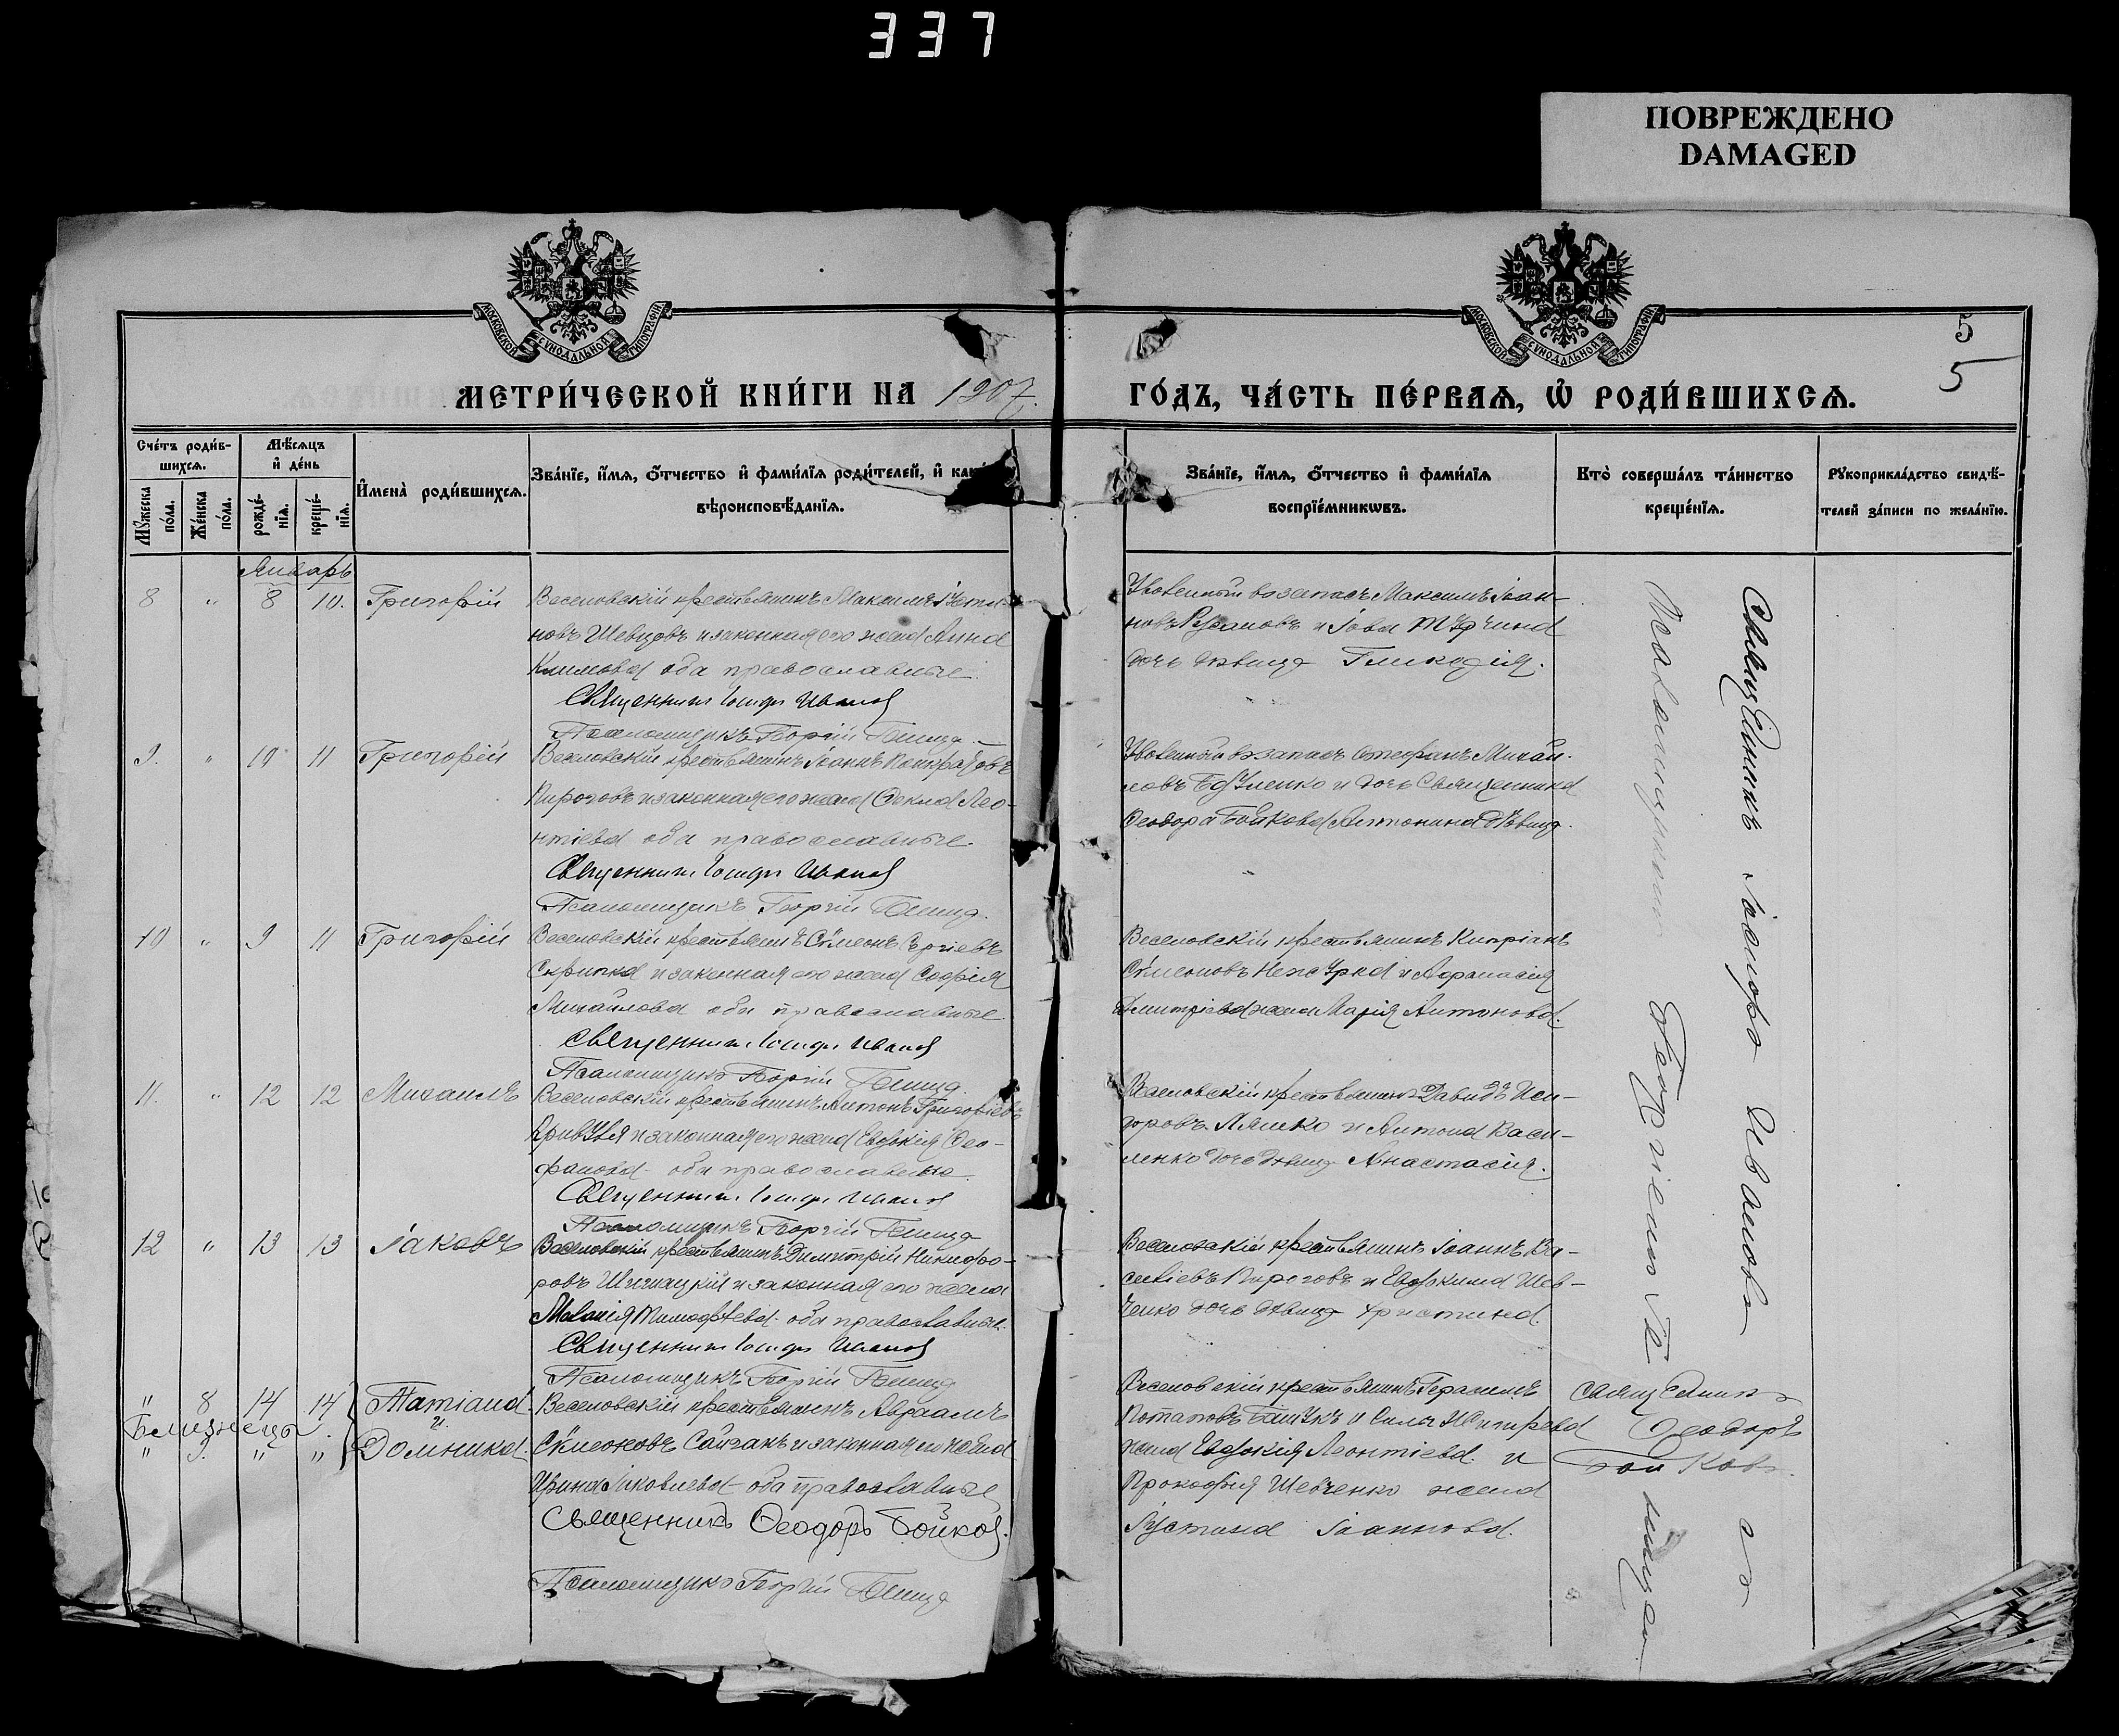 337
ПОВРЕЖДЕНО
DAMAGED
МОСКОВСКОЙ СѴНОДАЛЬНОЙ ТИПОГРАФІИ
МОСКОВСКОЙ СѴНОДАЛЬНОЙ ТИПОГРАФІИ
5
5
МЕТРИ́ЧЕСКОЙ КНИ́ГИ НА 1907
ГО́ДЪ, ЧА́СТЬ ПЕ́РВАѦ, Ѡ РОДИ́ВШИХСѦ.
Сче́тъ роди́в-
шихсѧ.
Мѣ́сѧцъ
и҆ де́нь
Мꙋжеска по́ла.
Же́нска по́ла.
рожде́-
нїѧ.
креще́-
нїѧ.
И҆мена̀ роди́вшихсѧ.
Зва́нїе, и҆́мѧ, ѻ҆́тчество и҆ фами́лїѧ роди́телей, и҆
вѣроисповѣ́данїѧ.
Зва́нїе, и҆́мѧ, ѻ҆́тчество и҆ фами́лїѧ
воспрїе́мникѡвъ.
Кто̀ соверша́лъ та́инство
креще́нїѧ.
Рꙋкоприкла́дство свидѣ́-
телей за́писи по жела́нїю.
Январь
8 " 8 10. Григорій
Веселовскій крестьянинъ Максимъ
новъ Шевцовъ и законная его жена Анна
Климова оба православные.
Священникъ Іосифъ Ивановъ
Псаломщикъ Георгій
Уволенный въ запасъ Максимъ Іоан-
новъ Русановъ и Іова
дочь дѣвица Гликерія.
9. " 10 11 Григорій
Веселовскій крестьянинъ Іоаннъ Панкратовъ
Пироговъ и законная его жена Ѳекла Лео-
нтіева оба православные.
Священникъ Іосифъ Ивановъ
Псаломщикъ Георгій
Уволенный въ запасъ Стефанъ Михай-
ловъ и дочь Священника
Ѳеодора Бойкова Антонина дѣвица.
10 " 9 11 Григорій
Веселовскій крестьянинъ Сѵмеонъ Сергіевъ
Скрипка и законная его жена Софія
Михайлова оба православные.
Священникъ Іосифъ Ивановъ
Псаломщикъ Георгій
Веселовскій крестьянинъ Кипріанъ
Сѵмеоновъ и Афанасія
Дмитріева жена Марія Антонова.
11. " 12 12 Михаилъ
Веселовскій крестьянинъ Антонъ Григоріевъ
и законная его жена Евдокія Ѳео-
фанова оба православные.
Священникъ Іосифъ Ивановъ
Псаломщикъ Георгій
Веселовскій крестьянинъ Давидъ Иси-
доровъ Ляшко и Антона Васи-
ленко дочь дѣвица Анастасія.
12 " 13 13 Іаковъ
Веселовскій крестьянинъ Димитрій Никифо-
ровъ и законная его жена
Меланія Тимофѣева оба православные.
Священникъ Іосифъ Ивановъ
Псаломщикъ Георгій
Веселовскій крестьянинъ Іоаннъ Ва-
силіевъ Пироговъ и Евдокима Шев-
ченко дочь дѣвица Христина.
" 8 14 14 Татіана
и
Близнецы
" 9. " " Домника.
Веселовскій крестьянинъ Авраамъ
Сѵмеоновъ Сайганъ и законная его жена
Ирина Іаковлева оба православные
Священникъ Ѳеодоръ Бойковъ.
Псаломщикъ Георгій
Веселовскій крестьянинъ Герасимъ
Потаповъ и Силы
жена Евдокія Леонтіева и
Прокофія Шевченко жена
Іустина Іоаннова.
Священникъ
Ѳеодоръ
Бойковъ.
Священникъ Іосифъ Ивановъ съ
Псаломщикомъ Георгіемъ